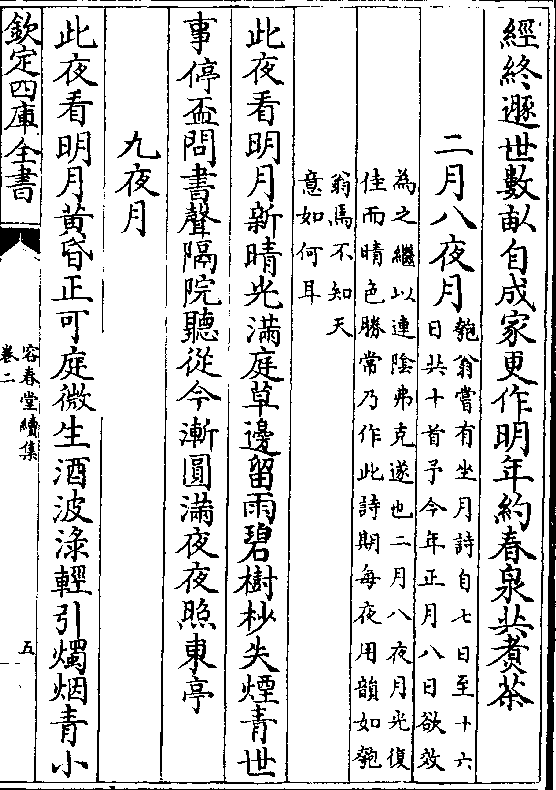 經終遯世數畝自成家更作明年約春泉共煮茶
二月八夜月
匏翁嘗有坐月詩自七日至十六
日共十首予今年正月八日欲效
為之繼以連陰弗克遂也二月八夜月光復
佳而晴色勝常乃作此詩期每夜用韻如匏
翁焉不知天
意如何耳
此夜看明月新晴光滿庭草邊留雨碧樹杪失煙青世
事停盃問書聲隔院聽從今漸圓滿夜夜照東亭
九夜月
此夜看明月黄昏正可庭微生酒波淥輕引燭烟青小
欽定四庫全書
容春堂續集
卷二
五